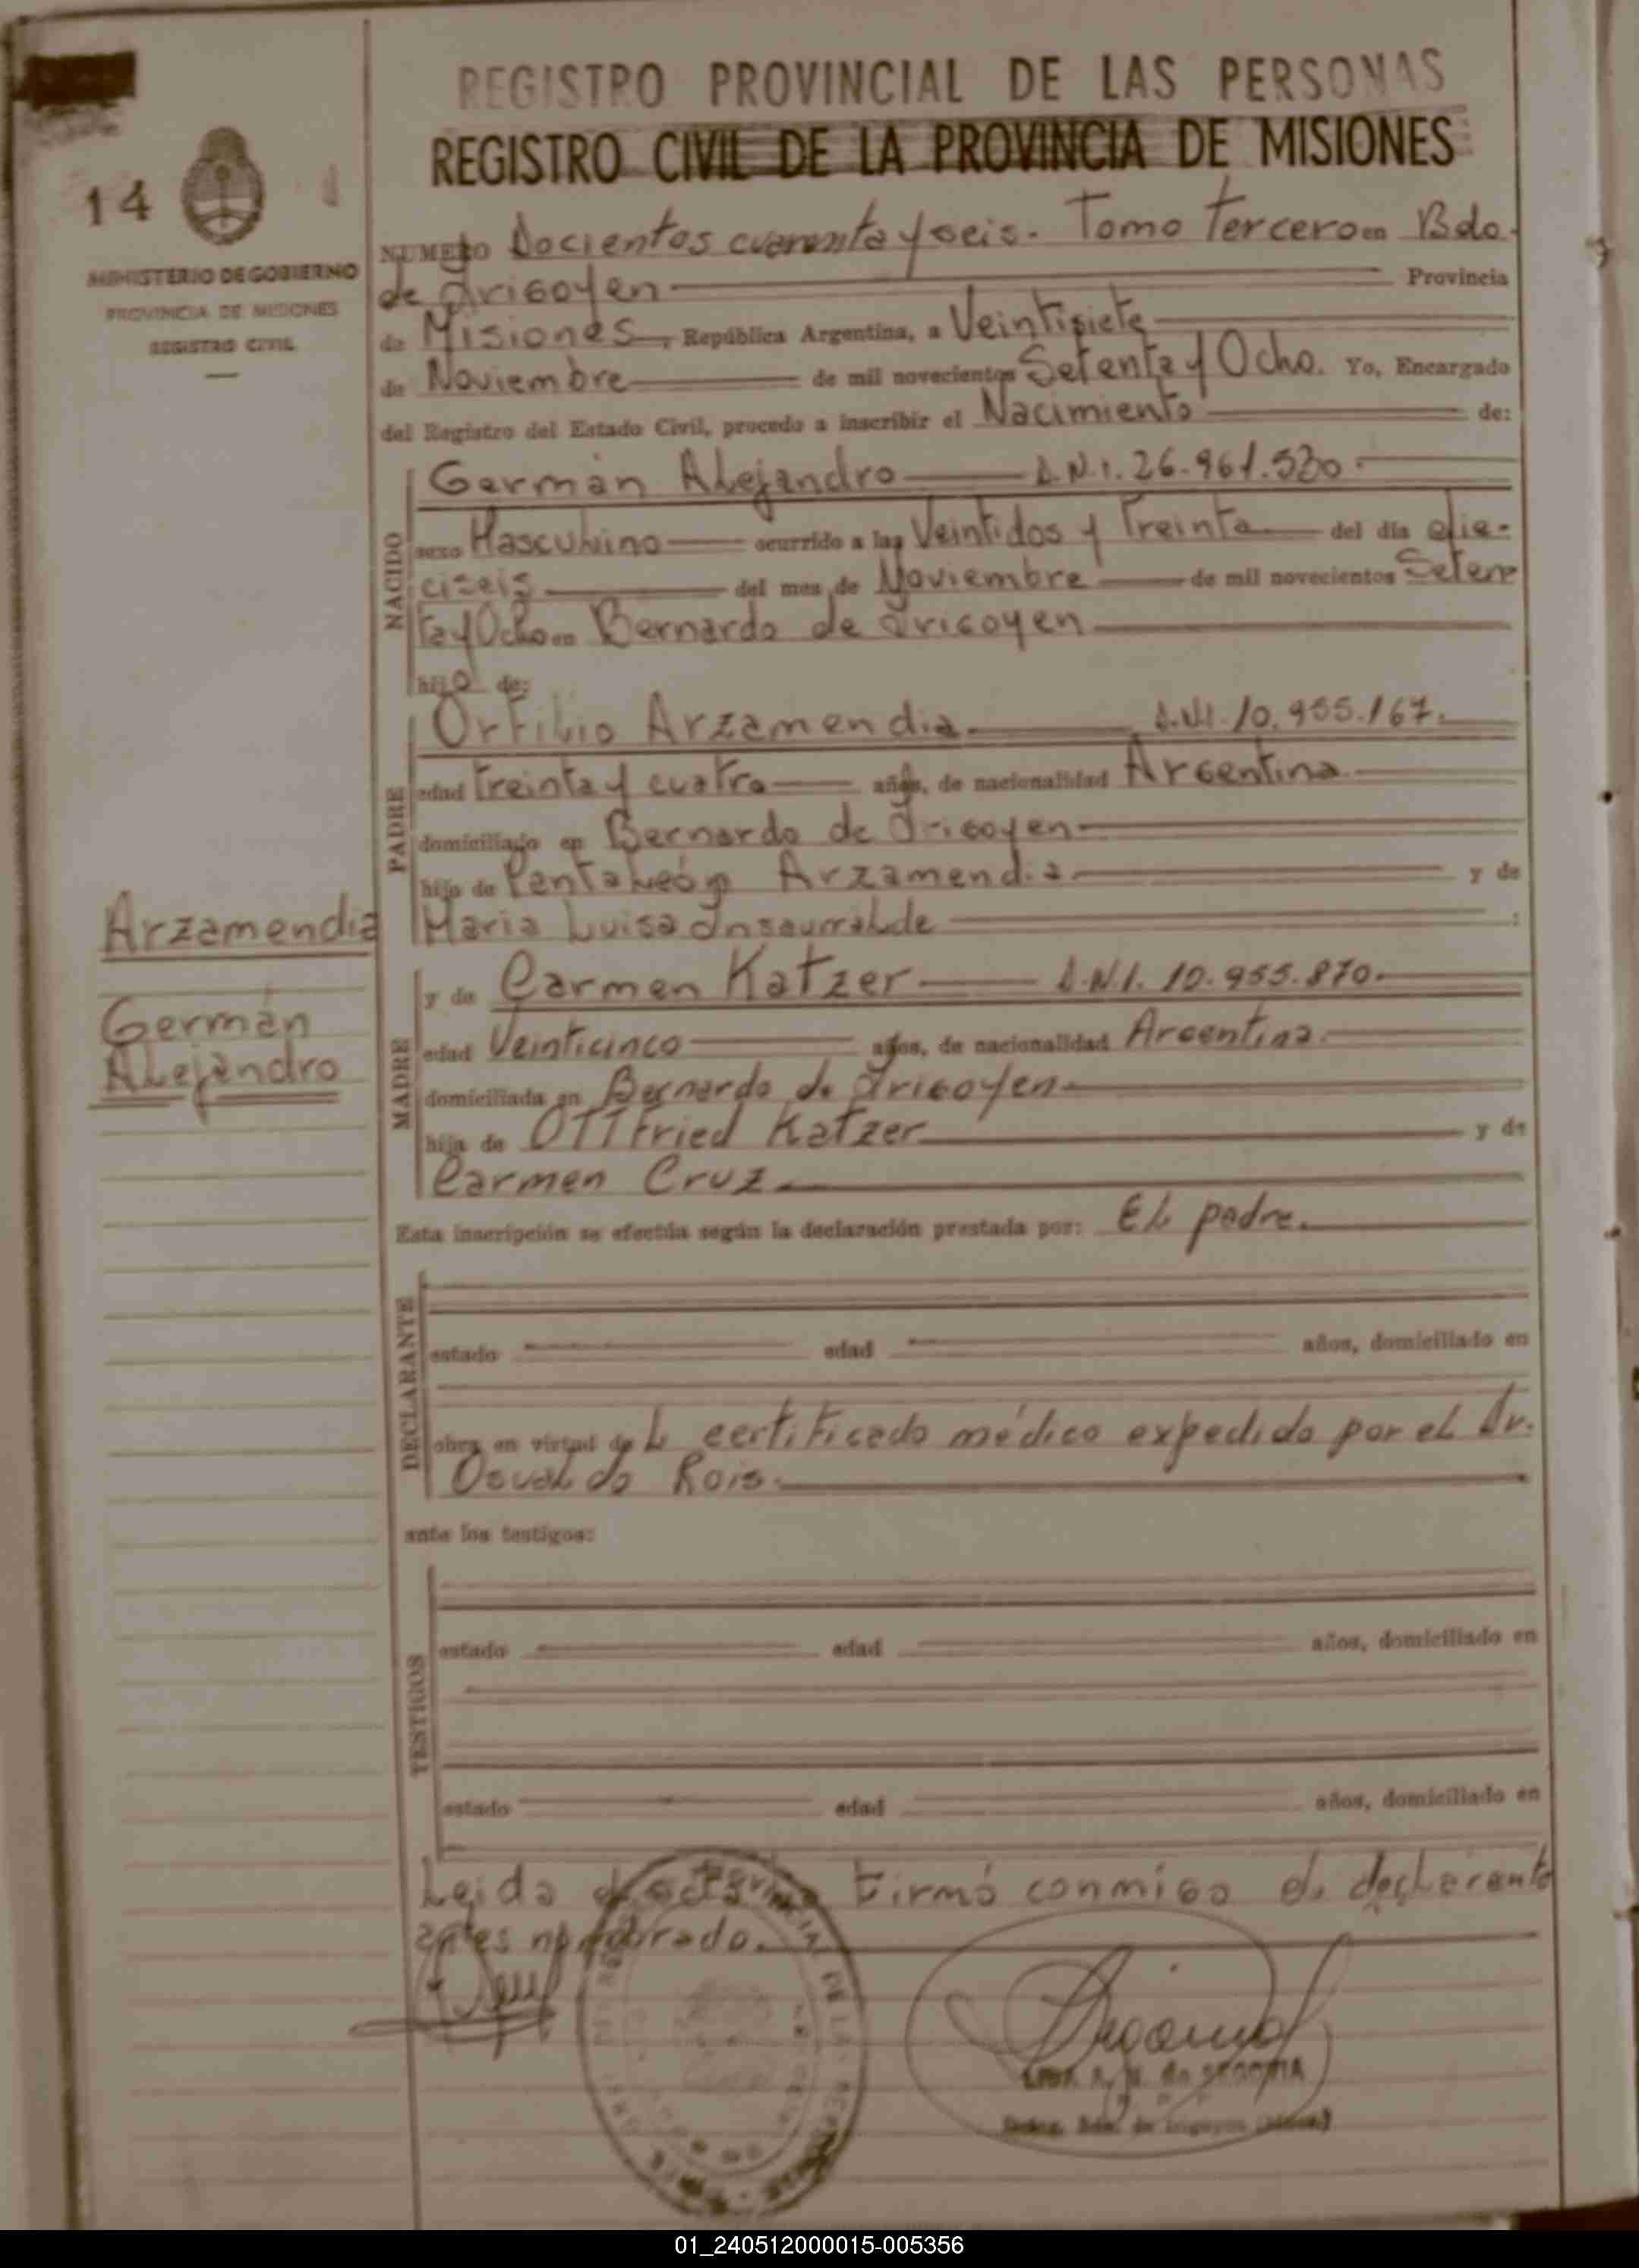 REGISTRO PROVINCIAL DE LAS PERSONAS
REGISTRO CIVIL DE LA PROVINCIA DE MISIONES
14
MINISTERIO DE GOBIERNO
PROVINCIA DE MISIONES
REGISTRO CIVIL
NUMERO Docientos cuarenta y seis. Tomo Tercero en Bdo.
de Irigoyen Provincia
de Misiones, República Argentina, a Veintisiete
de Noviembre de mil novecientos Setenta y Ocho. Yo, Encargado
del Registro del Estado Civil, procedo a inscribir el Nacimiento de:
NACIDO
Germán Alejandro D.N.I. 26.961.520.
sexo Masculino ocurrido a las Veintidos y Treinta del día die-
ciseis del mes de Noviembre de mil novecientos Seten
ta y Ocho en Bernardo de Irigoyen
hijo de:
PADRE
Orfilio Arzamendia. D.N.I. 10.955.167.
edad treinta y cuatro años, de nacionalidad Argentina
domiciliado en Bernardo de Irigoyen
hijo de Pantaleón Arzamendia y de
Maria Luisa Insaurralde :
Arzamendia
Germán
Alejandro
MADRE
y de Carmen Katzer D.N.I. 10.955.870.
edad Veinticinco años, de nacionalidad Argentina.
domiciliada en Bernardo de Irigoyen
hija de Ottfried Katzer y de
Carmen Cruz.
Esta inscripción se efectúa según la declaración prestada por: El padre.
DECLARANTE
estado edad años, domiciliado en
obra en virtud del certificado médico expedido por el Dr.
Osvaldo Rois.
ante los testigos:
TESTIGOS
estado edad años, domiciliado en
estado edad años, domiciliado en
Leida el acta firmó conmigo el declarante
antes nombrado.
de SEGOVIA
01_240512000015-005356